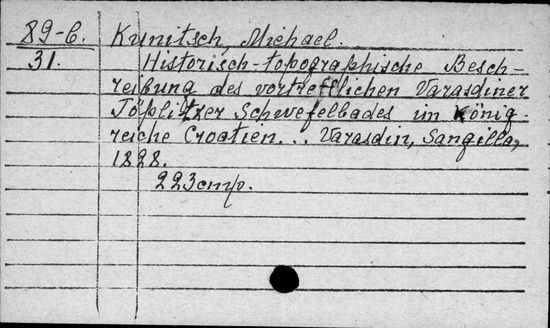 89-C. Kunitsch, Michael.
31. Historisch-topographische Besch-
reibung des vortrefflichen Varasdiner
Töplitzer Schwefelbades im König-
reiche Croatien... Varasdin, Sangilla,
1828.
223 cm/p.